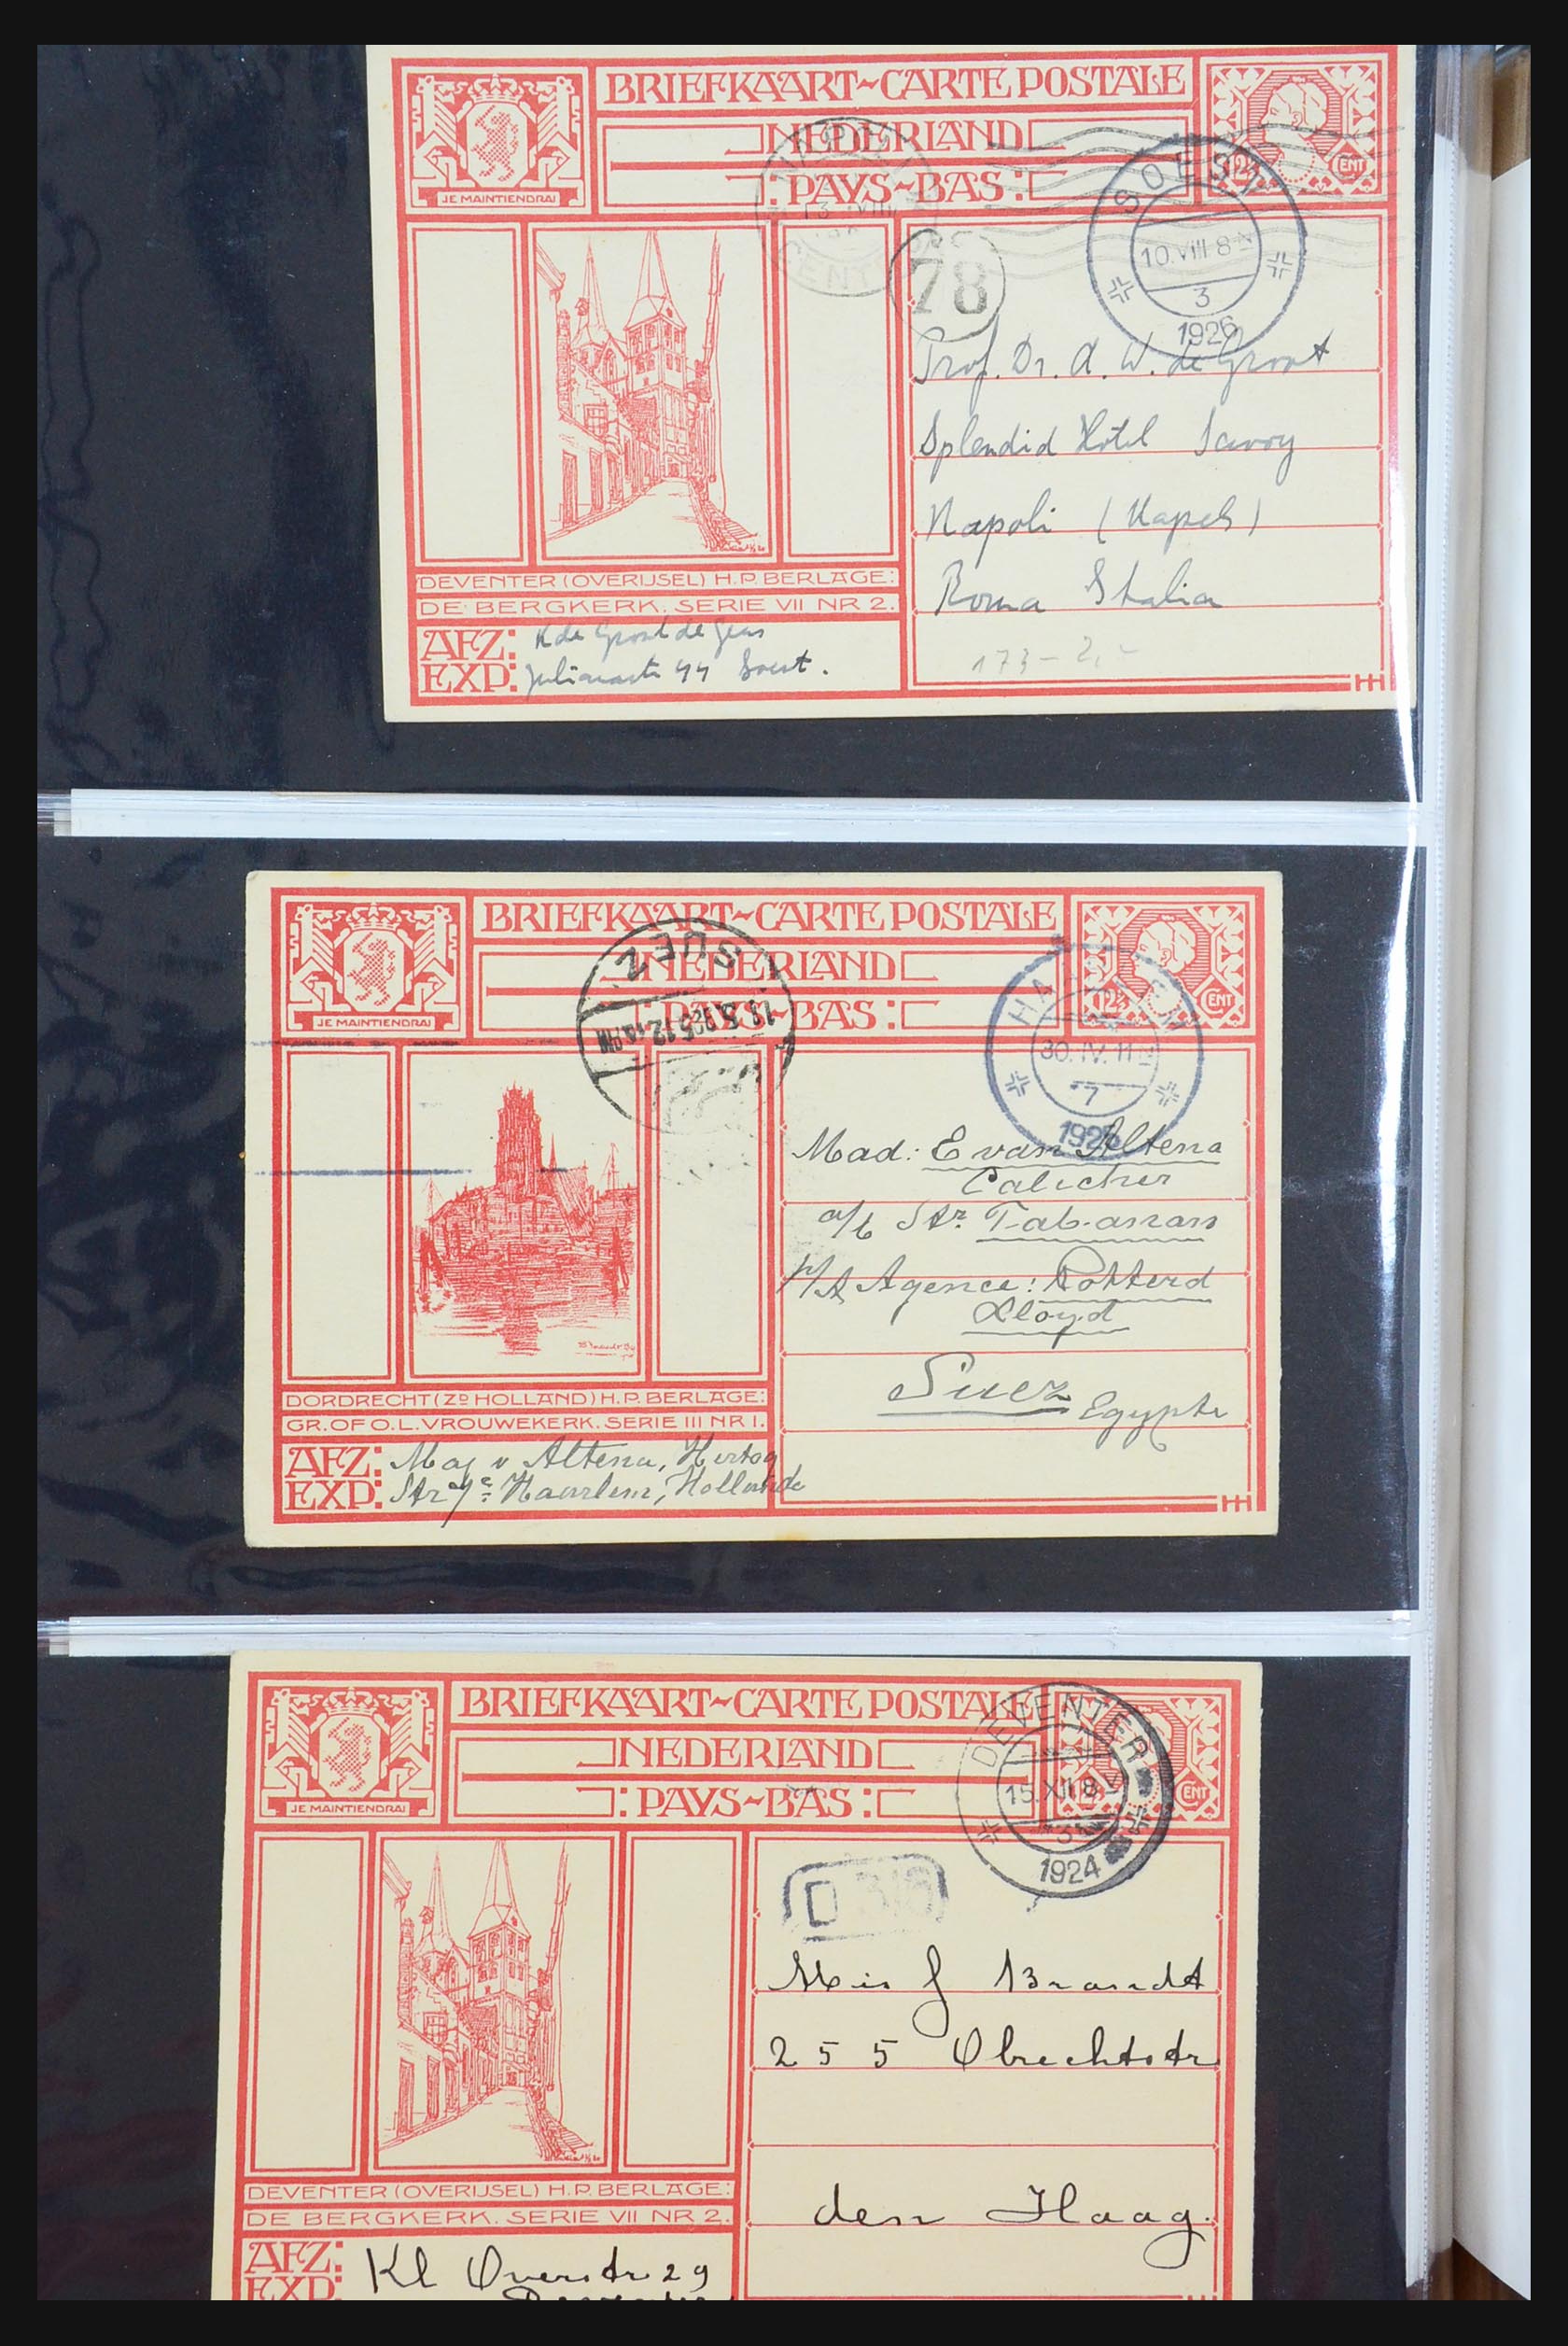 BRIEFKAART~CARTE POSTALE
NEDERLAND
PAYS~BAS
JE MAINTIENDRAI
12½ CENT
SOEST
10.VIII 8
3
1926
78
Prof. Dr. A. W. de Groot
Splendid Hotel Savoy
Napoli (Napels)
Roma Italia
173 - 2,-
DEVENTER (OVERIJSEL) H.P. BERLAGE:
DE BERGKERK. SERIE VII NR 2.
AFZ:
EXP:
K de Groot de Geus
Julianastr 44 Soest.
BRIEFKAART~CARTE POSTALE
NEDERLAND
PAYS~BAS
JE MAINTIENDRAI
12½ CENT
SUEZ
HAARLEM
30.IV.11
7
Mad: E van Altena
Calicher
a/b Str Tabanan
p/A Agence: Rotterd
Lloyd
Suez Egypte
DORDRECHT (ZD HOLLAND) H.P. BERLAGE:
GR. OF O.L. VROUWEKERK. SERIE III NR I.
AFZ:
EXP:
v Altena, Hertog
Str Haarlem, Hollande
BRIEFKAART~CARTE POSTALE
NEDERLAND
PAYS~BAS
JE MAINTIENDRAI
CENT
DEVENTER
15.XII 8 V
3
1924
D
J Brandt
255 Obrechtstr
den Haag.
DEVENTER (OVERIJSEL) H.P. BERLAGE:
DE BERGKERK. SERIE VII NR 2.
AFZ:
EXP:
Kl Overstr 29